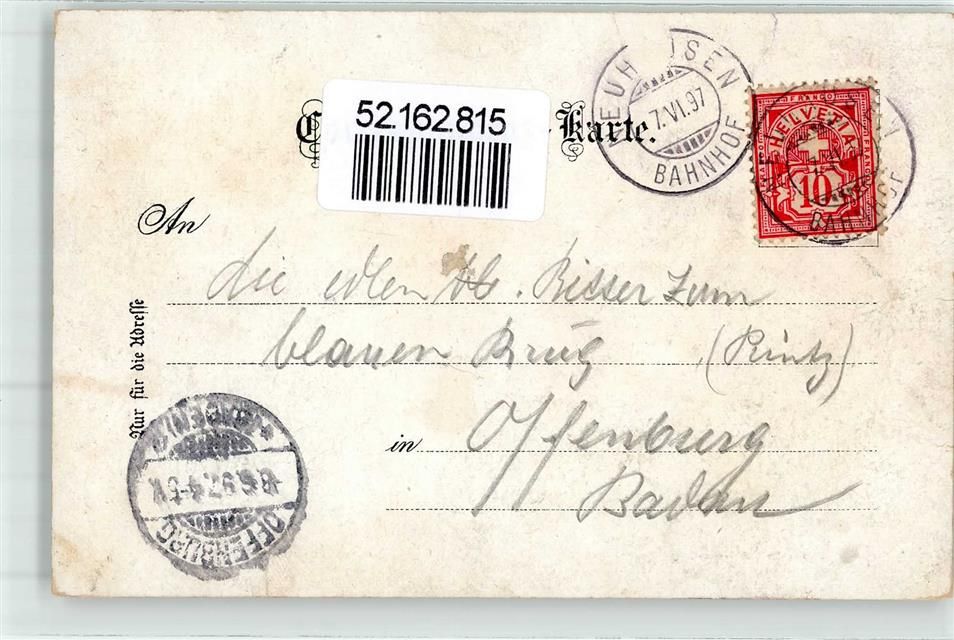 52.162.815
Karte.
NEUH SEN
7.VI.97
BAHNHOF
FRANCO
HELVETIA
10
An
die edlen Hh. Ritter zum
blauen Krug (Printz)
in Offenburg
Baden
Nur für die Adresse
OFFENBURG